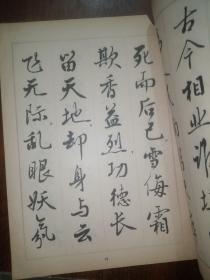 古今相业谁
死而后已雪侮霜
欺香益烈功德长
留天地却身与云
飞无际乱眼妖氛